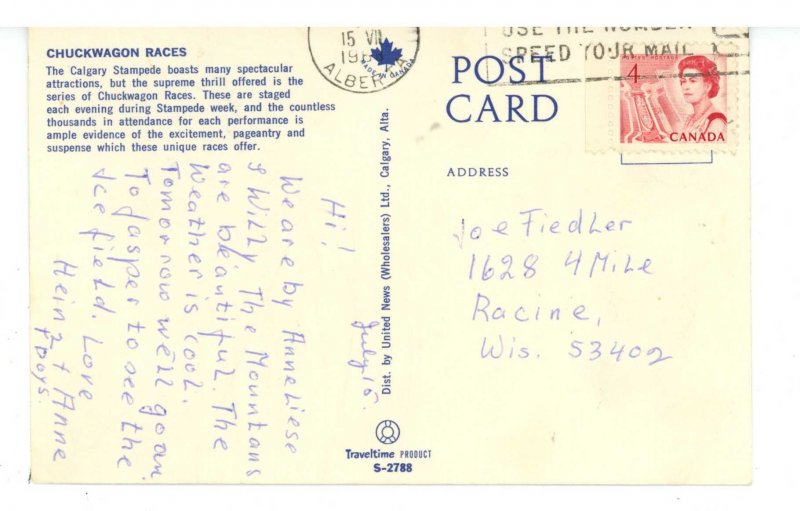 CHUCKWAGON RACES
The Calgary Stampede boasts many spectacular
attractions, but the supreme thrill offered is the
series of Chuckwagon Races. These are staged
each evening during Stampede week, and the countless
thousands in attendance for each performance is
ample evidence of the excitement, pageantry and
suspense which these unique races offer.
Hi!
July 15.
We are by Anneliese
& Willy The Mountans
are beautiful. The
Weather is cool.
Tomorrow we'll go on
To Jasper to see the
Ice field. Love
Heinz + Anne
Boys.
Dist. by United News (Wholesalers) Ltd., Calgary, Alta.
MADE IN CANADA
Traveltime PRODUCT
S-2788
15 VII
ALBERTA
USE THE NUMBER
SPEED YOUR MAIL
POST
CARD
4
POSTAGE
CANADA
ADDRESS
Joe Fiedler
1628 4 Mile
Racine,
Wis. 53402